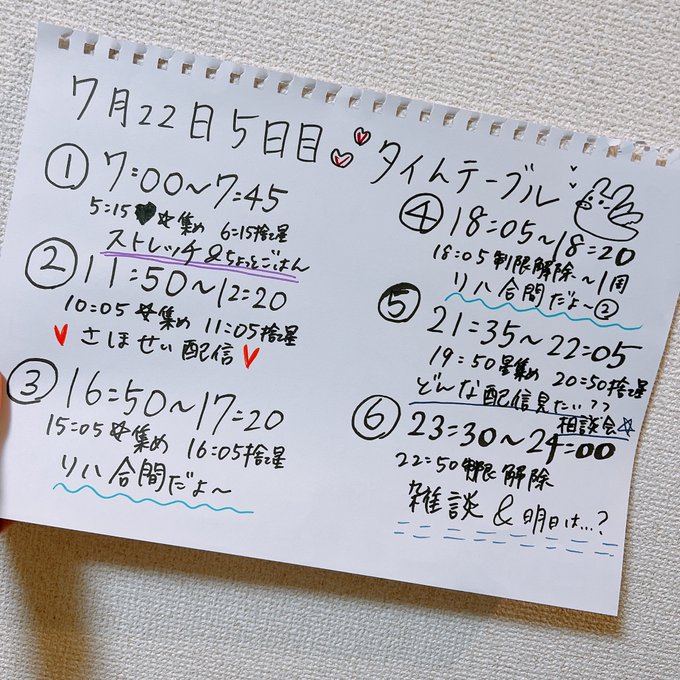 7月22日5日目 タイムテーブル
① 7:00〜7:45
5:15 ☆集め 6:15捨星
ストレッチ&ちょっとごはん
② 11:50〜12:20
10:05 ☆集め 11:05捨星
さほせい配信
③ 16:50〜17:20
15:05 ☆集め 16:05捨星
リハ合間だよ〜
④ 18:05〜18:20
18:05 制限解除〜1周
リハ合間だよ〜②
⑤ 21:35〜22:05
19:50 星集め 20:50捨星
どんな配信見たい??
相談会☆
⑥ 23:30〜24:00
22:50 制限解除
雑談&明日は…?